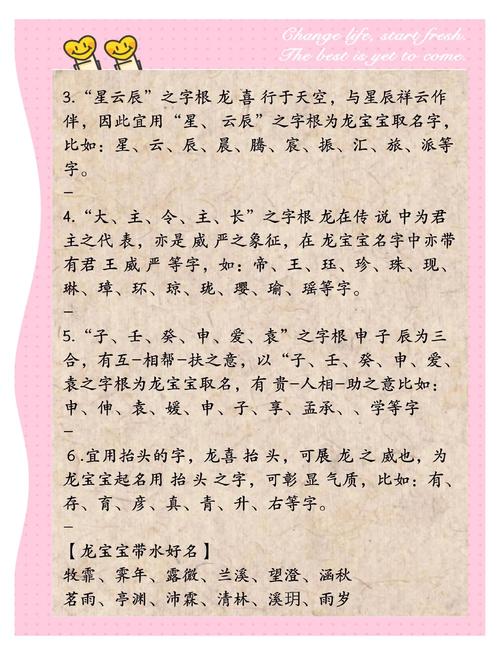 Change life, start fresh.
The best is yet to come.
3.“星云辰”之字根 龙 喜 行于天空，与星辰祥云作
伴，因此宜用“星、 云辰”之字根为龙宝宝取名字，
比如：星、云、辰、晨、腾、宸、振、汇、旅、派等
字。
—
4.“大、主、令、主、长”之字根 龙在传 说 中为君
主之代 表，亦是 威 严之象征，在 龙宝宝名字中亦带
有君 王 威 严 等字，如：帝、王、珏、珍、珠、现、
琳、璋、环、琼、珑、璎、瑜、瑶等字。
—
5.“子、壬、癸、申、爱、袁”之字根 申 子 辰为三
合，有互–相帮–扶之意，以“子、壬、癸、申、爱、
袁之字根为龙宝宝取名，有 贵–人相–助之意比如：
申、伸、袁、媛、申、子、享、孟承、、学等字
—
6 .宜用抬头的字，龙喜 抬 头，可展 龙 之 威也，为
龙宝宝起名用 抬 头 之字，可彰 显 气质，比如：有、
存、育、彦、真、青、升、右等字。
—
【龙宝宝带水好名】
牧霏、霁年、露微、兰溪、望澄、涵秋
茗雨、亭渊、沛霖、清林、溪玥、雨岁